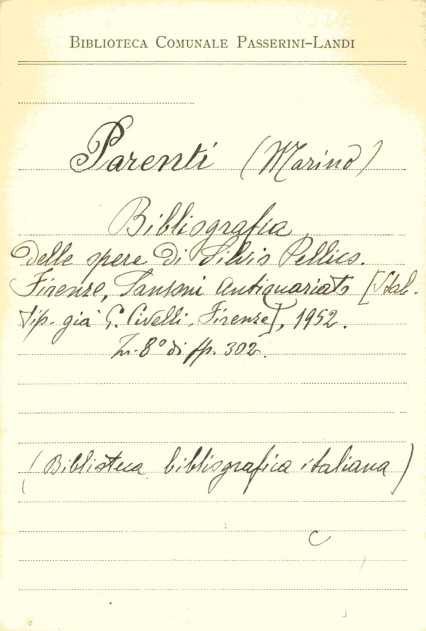 BIBLIOTECA COMUNALE PASSERINI-LANDI
Parenti (Marino)
Bibliografia
delle opere di Silvio Pellico.
Firenze, Sansoni Antiquariato [Stab.
tip. già G. Civelli, Firenze], 1952.
In-8° di pp. 302.
(Biblioteca bibliografica italiana)
C